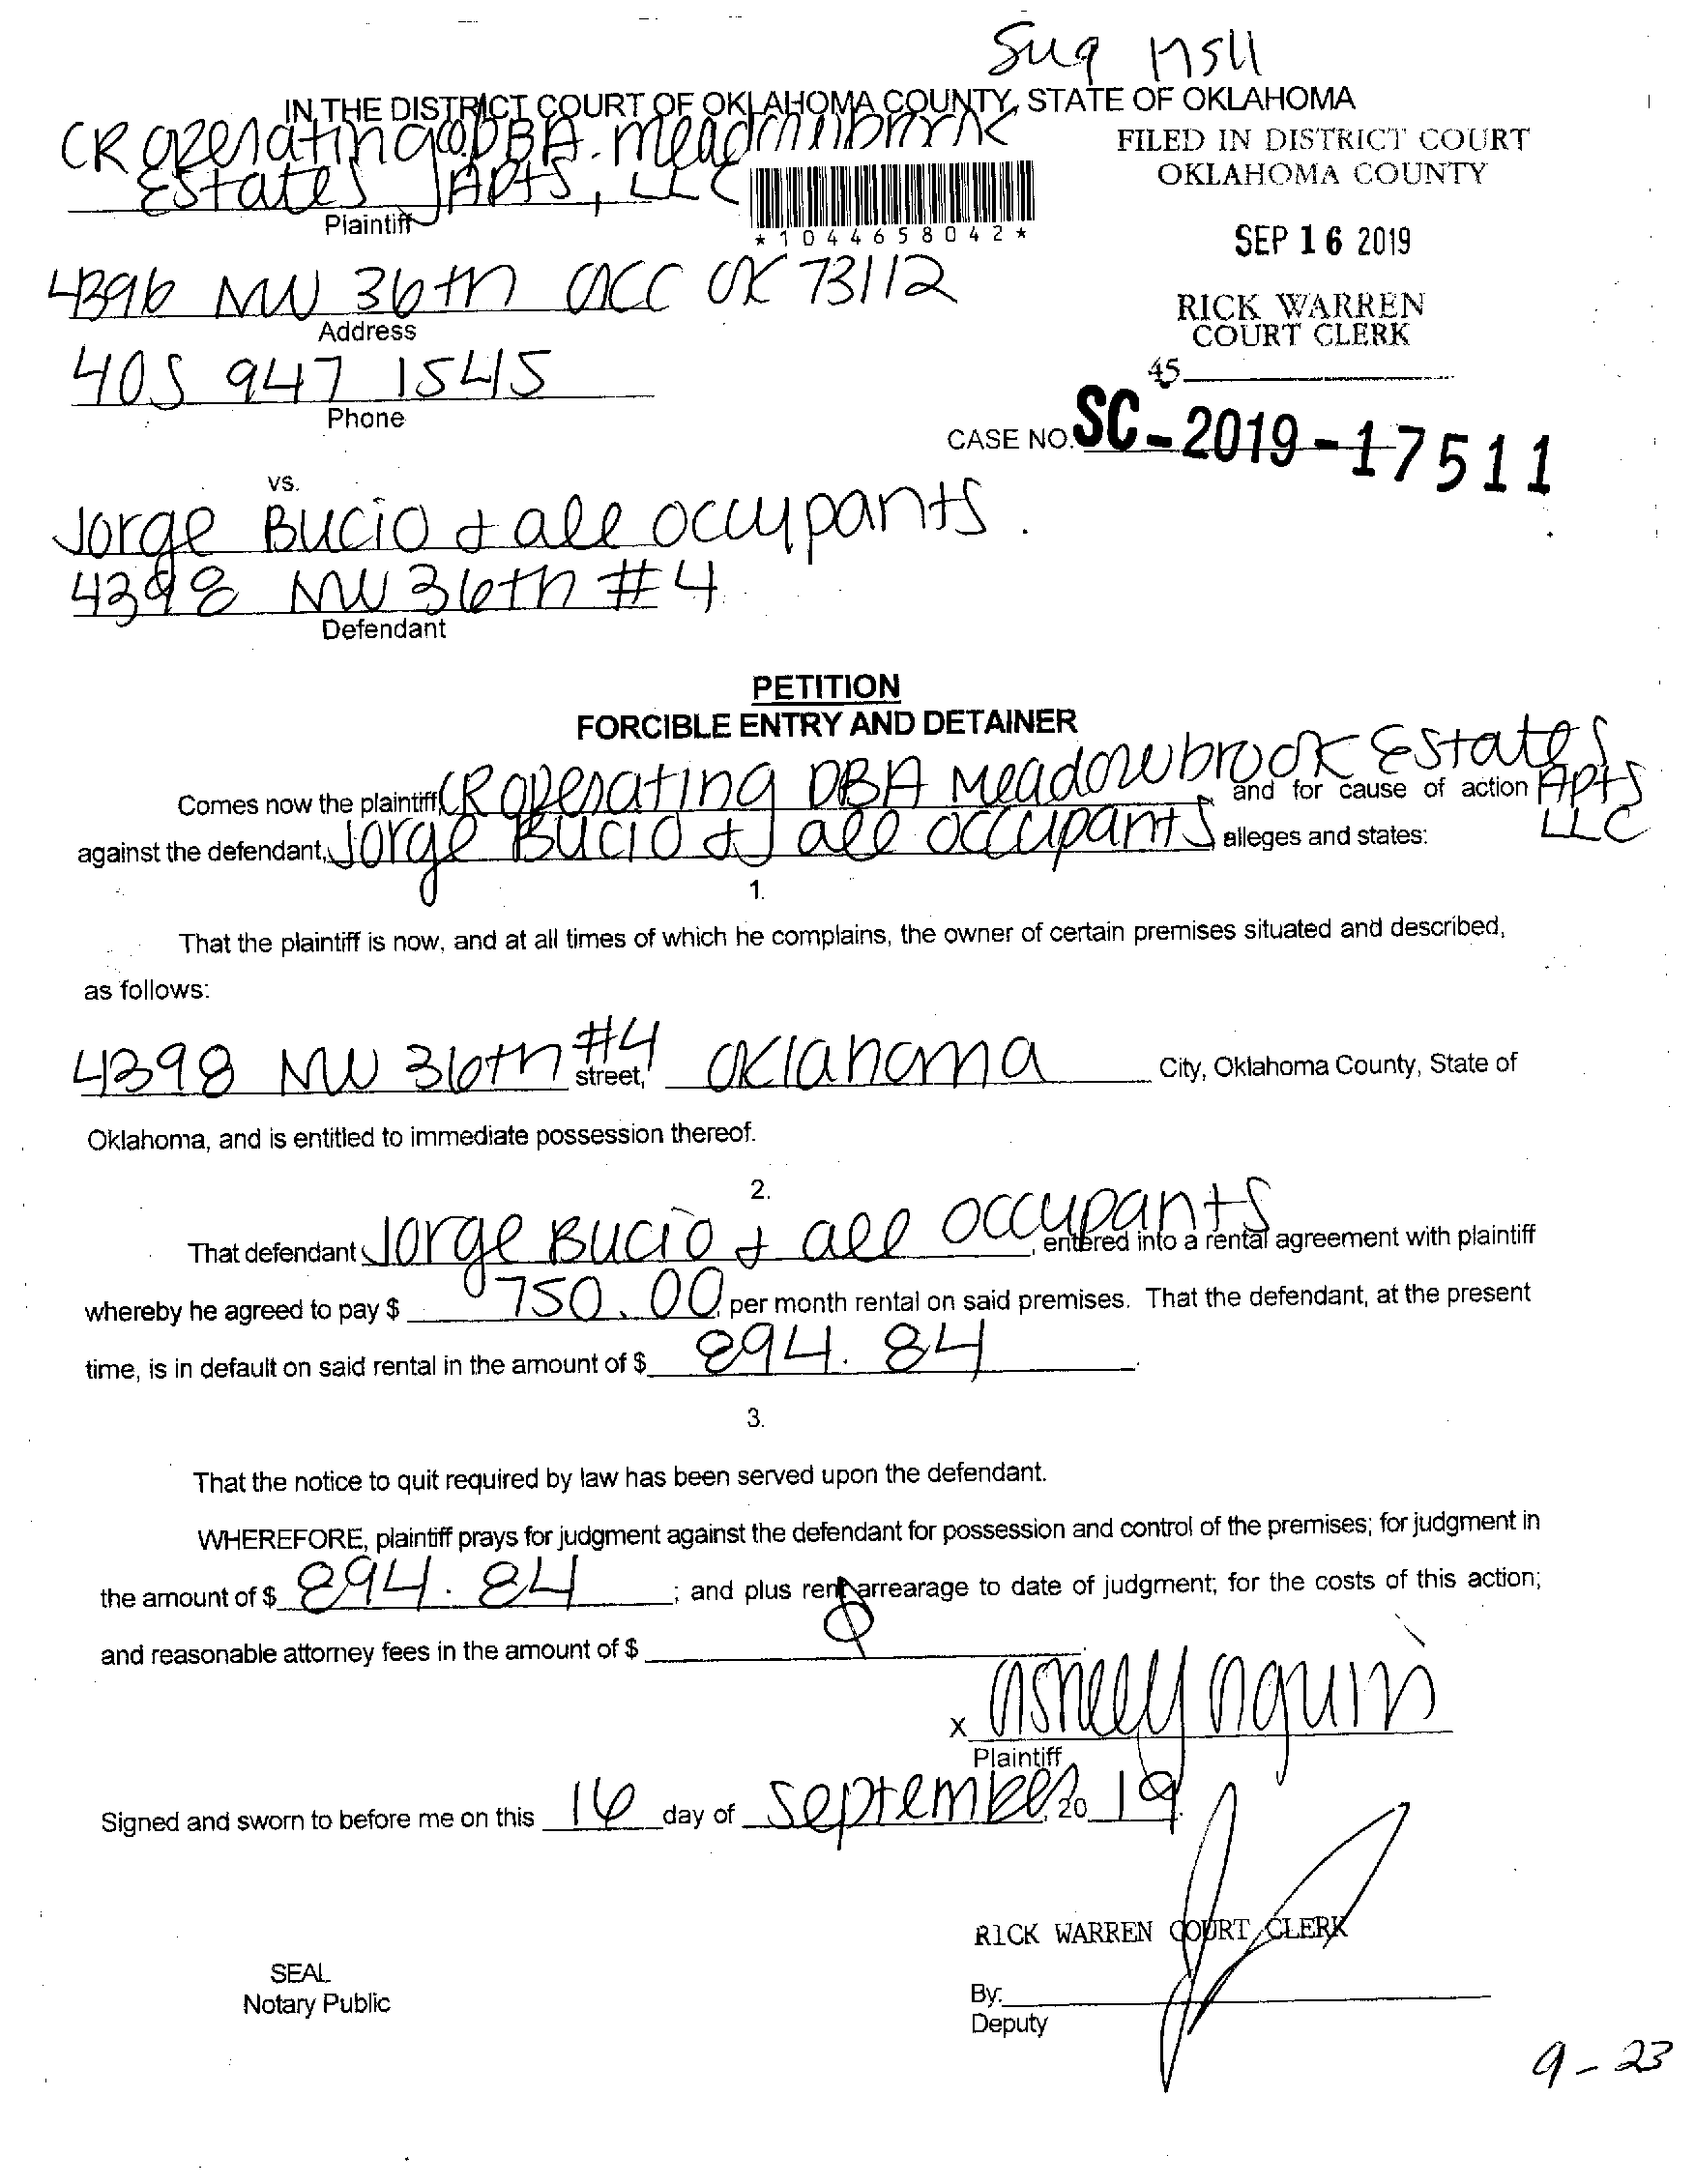 IN THE DISTRICT COURT OF OKLAHOMA COUNTY, STATE OF OKLAHOMA
CR Operating DBA Meadowbrook
Estates Apts, LLC
Plaintiff
*1044658042*
FILED IN DISTRICT COURT
OKLAHOMA COUNTY
SEP 16 2019
RICK WARREN
COURT CLERK
45
4396 NW 36th OKC OK 73112
Address
405 947 1545
Phone
CASE NO. SC-2019-17511
vs.
Jorge Bucio & all occupants.
4398 NW 36th #4
Defendant
PETITION
FORCIBLE ENTRY AND DETAINER
Comes now the plaintiff, CR Operating DBA Meadowbrook Estates Apts LLC and for cause of action
against the defendant, Jorge Bucio & all occupants alleges and states:
1.
That the plaintiff is now, and at all times of which he complains, the owner of certain premises situated and described,
as follows:
4398 NW 36th #4 street, Oklahoma City, Oklahoma County, State of
Oklahoma, and is entitled to immediate possession thereof.
2.
That defendant Jorge Bucio & all occupants, entered into a rental agreement with plaintiff
whereby he agreed to pay $ 750.00, per month rental on said premises. That the defendant, at the present
time, is in default on said rental in the amount of $ 894.84.
3.
That the notice to quit required by law has been served upon the defendant.
WHEREFORE, plaintiff prays for judgment against the defendant for possession and control of the premises; for judgment in
the amount of $ 894.84; and plus rent arrearage to date of judgment; for the costs of this action;
and reasonable attorney fees in the amount of $ 0
x
Plaintiff
Signed and sworn to before me on this 16 day of September, 20 19.
RICK WARREN COURT CLERK
SEAL
Notary Public
By:
Deputy
9-23